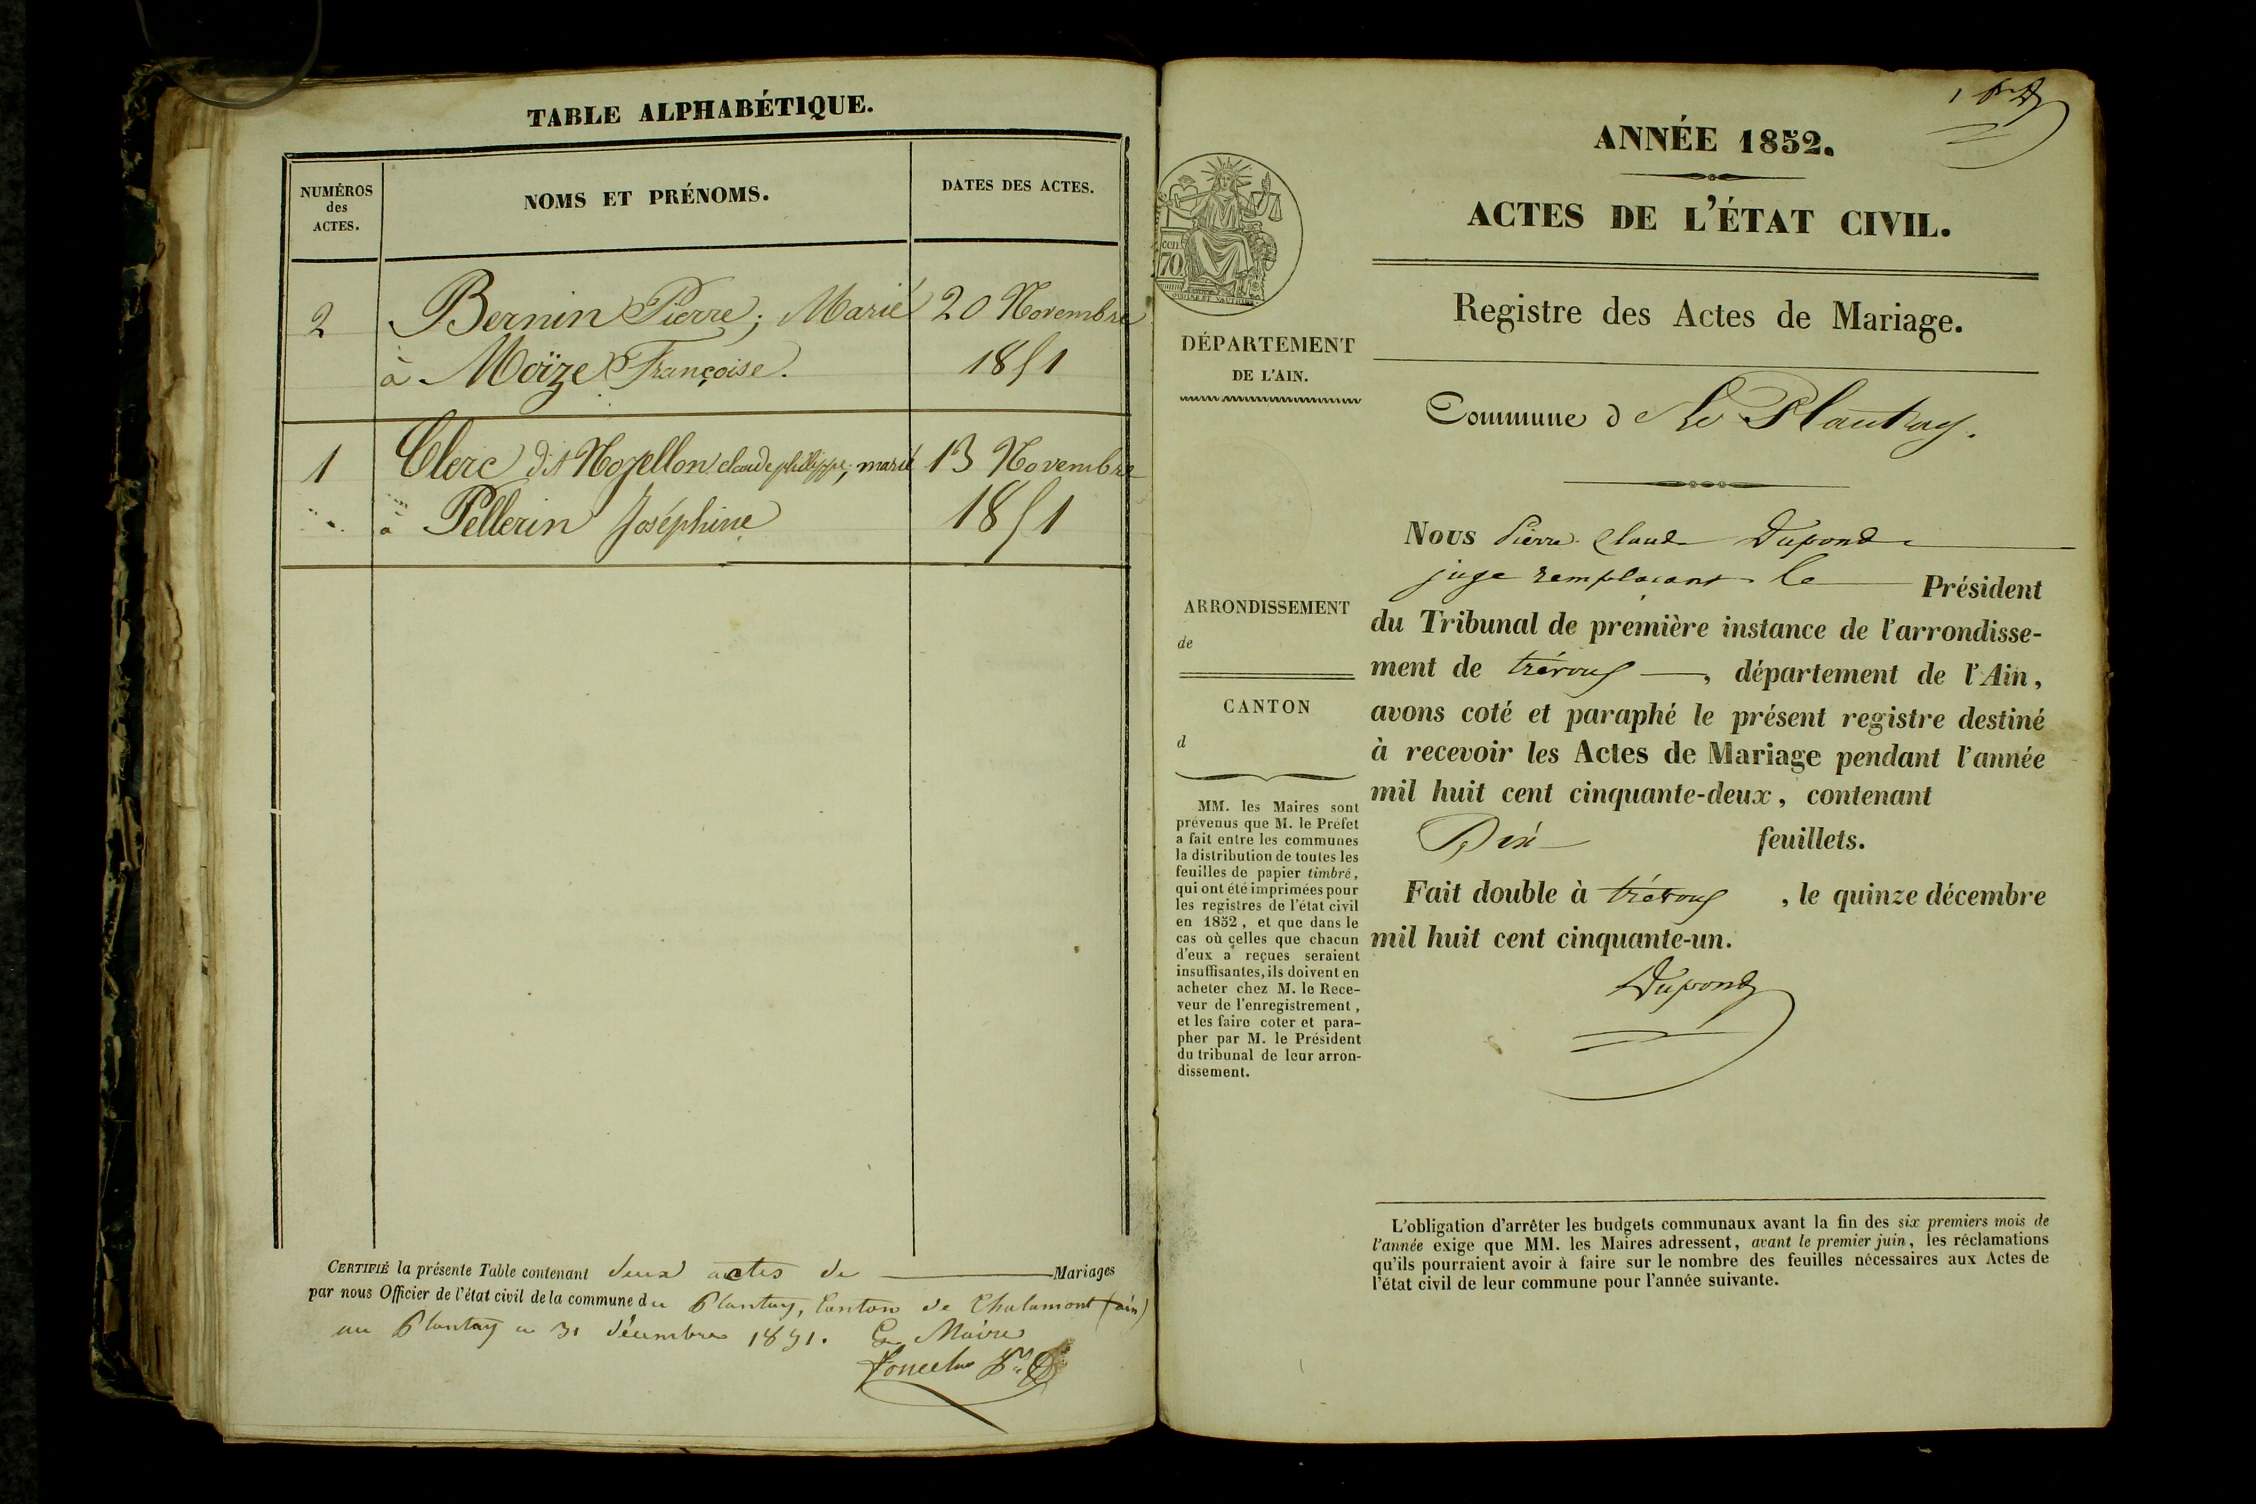 TABLE ALPHABÉTIQUE.
NUMÉROS
des
ACTES.
NOMS ET PRÉNOMS.
DATES DES ACTES.
2 Bernin Pierre; Marié 20 Novembre
à Moïze Françoise. 1851
1 Clerc dit Nozellon claude philippe; marié 13 Novembre
à Pellerin Joséphine 1851
CERTIFIÉ la présente Table contenant deux actes de Mariages
par nous Officier de l'état civil de la commune du Plantay, Canton de Chalamont (ain)
au Plantay le 31 décembre 1851. Le Maire
1er
ANNÉE 1852.
ACTES DE L'ÉTAT CIVIL.
Registre des Actes de Mariage.
Commune d Le Plantay.
70
DÉPARTEMENT
DE L'AIN.
ARRONDISSEMENT
de
CANTON
d
MM. les Maires sont
prévenus que M. le Préfet
a fait entre les communes
la distribution de toutes les
feuilles de papier timbré,
qui ont été imprimées pour
les registres de l'état civil
en 1852, et que dans le
cas où celles que chacun
d'eux a reçues seraient
insuffisantes, ils doivent en
acheter chez M. le Rece-
veur de l'enregistrement,
et les faire coter et para-
pher par M. le Président
du tribunal de leur arron-
dissement.
Nous Pierre Claude Dupond
juge remplaçant le Président
du Tribunal de première instance de l'arrondisse-
ment de trévoux, département de l'Ain,
avons coté et paraphé le présent registre destiné
à recevoir les Actes de Mariage pendant l'année
mil huit cent cinquante-deux, contenant
Dix feuillets.
Fait double à trévoux, le quinze décembre
mil huit cent cinquante-un.
Dupond
L'obligation d'arrêter les budgets communaux avant la fin des six premiers mois de
l'année exige que MM. les Maires adressent, avant le premier juin, les réclamations
qu'ils pourraient avoir à faire sur le nombre des feuilles nécessaires aux Actes de
l'état civil de leur commune pour l'année suivante.